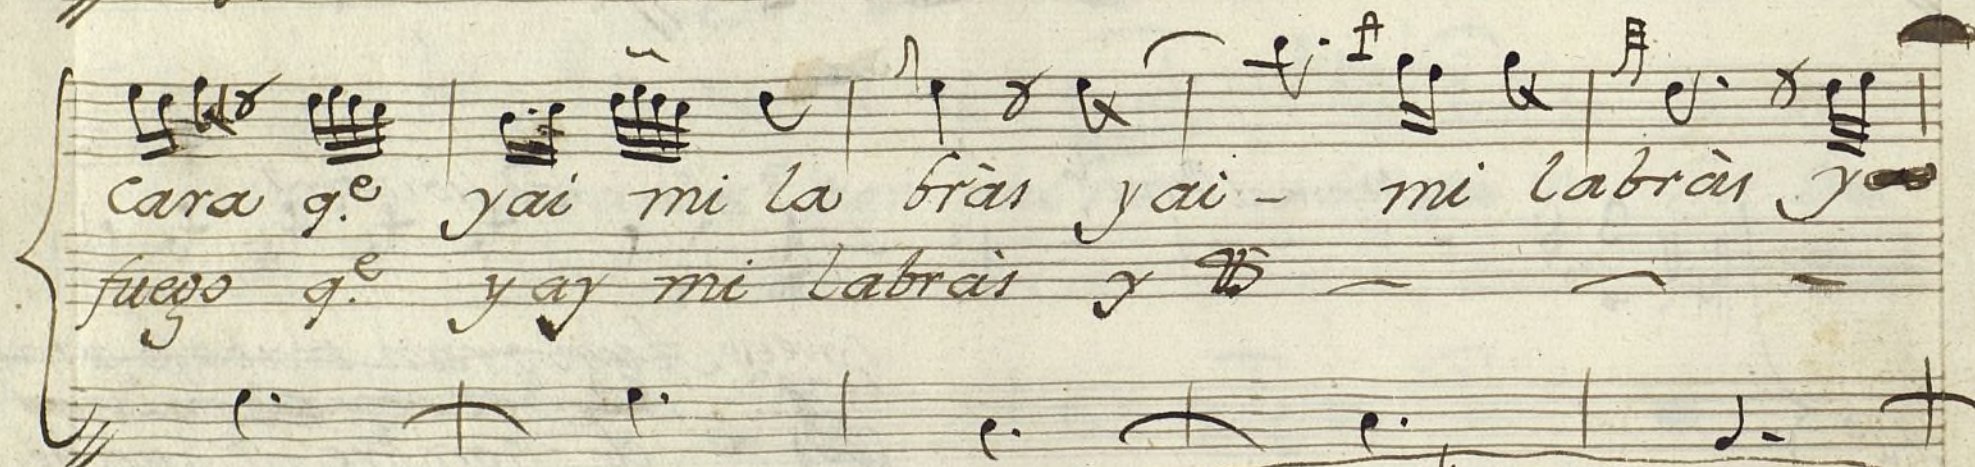 cara q.e yai mi la bràs yai - mi labràs y
fuego q.e y ay mi labràs y